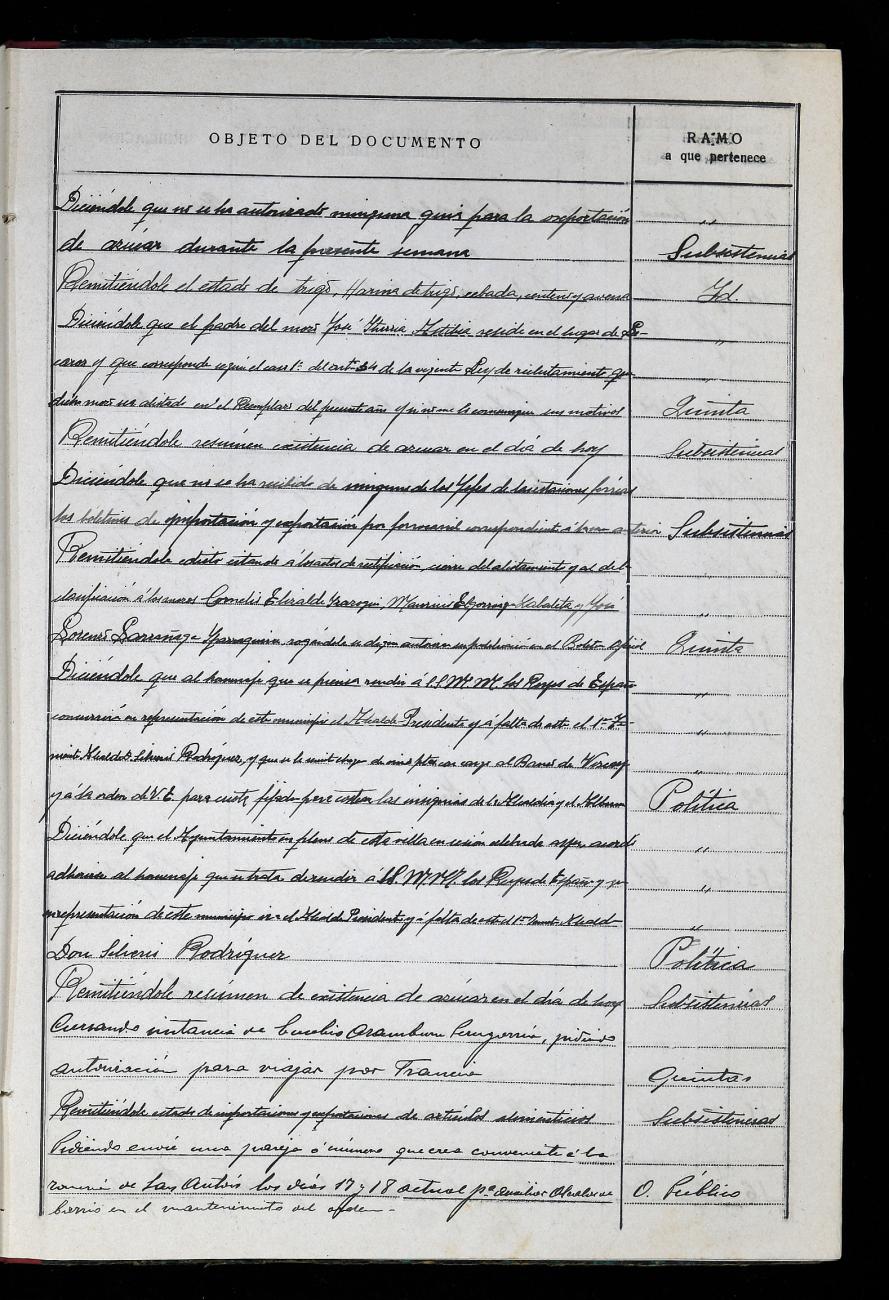 OBJETO DEL DOCUMENTO
RAMO
a que pertenece
Diciéndole que no se ha autorizado ninguna guia para la exportación „
de azúcar durante la presente semana Subsistencias
Remitiéndole el estado de trigo, Harina de trigo, cebada, centeno y avena Id.
Diciéndole que el padre del mozo José reside en el lugar de „
y que corresponde según el caso 1º del artº 34 de la vigente Ley de reclutamiento que „
dicho mozo sea alistado en el Reemplazo del presente año y si no me lo comunique sus motivos Quinta
Remitiéndole resúmen existencia de azucar en el día de hoy Subsistencias
Diciéndole que no se ha recibido de ninguno de los Jefes de las estaciones férreas
los boletines de importación y exportación por ferrocarril correspondiente á Subsistencias
Remitiéndole edicto citando á los actos de rectificación, cierre del alistamiento y al de la
clasificación á los mozos Cornelio Elizalde Mauricio y José „
Lorenzo Larrañaga rogándole se digne autorizar su publicación en el Boletin oficial Quinta
Diciéndole que al homenaje que se piensa rendir á S.S. M.M. los Reyes de España „
concurrirá en representación de este municipio el Alcalde Presidente y á falta de este el 1er Te- „
niente Alcalde Rodríguez, y que se le remite cheque de ptas con cargo al Banco de Vizcaya „
y á la orden de V.E. para cuota fijada para costear las insignias de la Alcaldía y el Album Política
Diciéndole que el Ayuntamiento en pleno de esta villa en sesión celebrada ayer acordó „
adherirse al homenaje que se trata de rendir á SS. M.M. los Reyes de España y que „
en representación de este municipio irá el Alcalde Presidente y á falta de este el 1er Tente Alcalde „
Don Rodríguez Política
Remitiéndole resúmen de existencia de azúcar en el día de hoy Subsistencias
Cursando instancia de Eusebio Aramburu pidiendo
autorización para viajar por Francia Quintas
Remitiéndole estado de importaciones y exportaciones de artículos alimenticios Subsistencias
Pidiendo envíe una pareja ó número que crea conveniente á la
romería de San Antón los días 17 y 18 actual pª auxiliar Alcalde de O. Público
barrio en el mantenimiento del orden.-